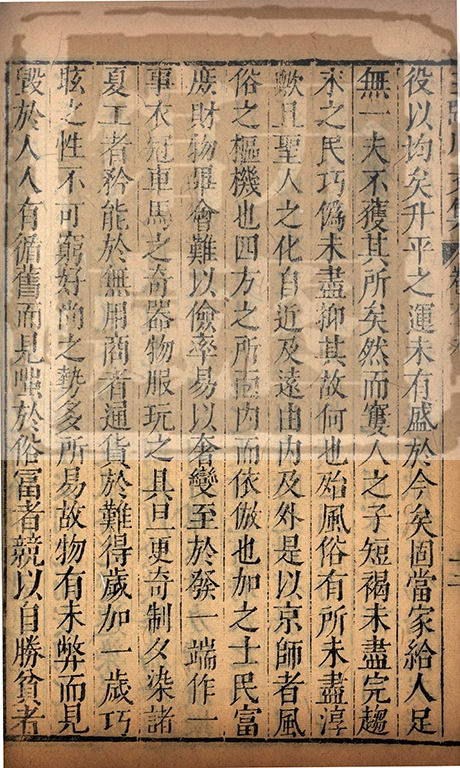 役以均矣升平之運未有盛於今矣固當家給人足
無一夫不獲其所矣然而窶人之子短褐未盡完趨
末之民巧僞未盡抑其故何也殆風俗有所未盡淳
歟且聖人之化自近及遠由内及外是以京師者風
俗之樞機也四方之所面内而依倣也加之士民富
庶財物畢會難以儉率易以奢變至於發一端作一
事衣冠車馬之奇器物服玩之具旦更奇制夕染諸
夏工者矜能於無用商者通貨於難得歲加一歲巧
眩之性不可窮好尚之勢多所易故物有未弊而見
毁於人人有循舊而見嗤於俗富者競以自勝貧者